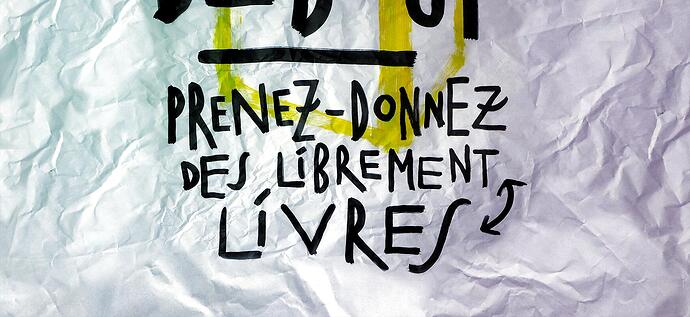 PRENEZ-DONNEZ
DES LIBREMENT
LIVRES